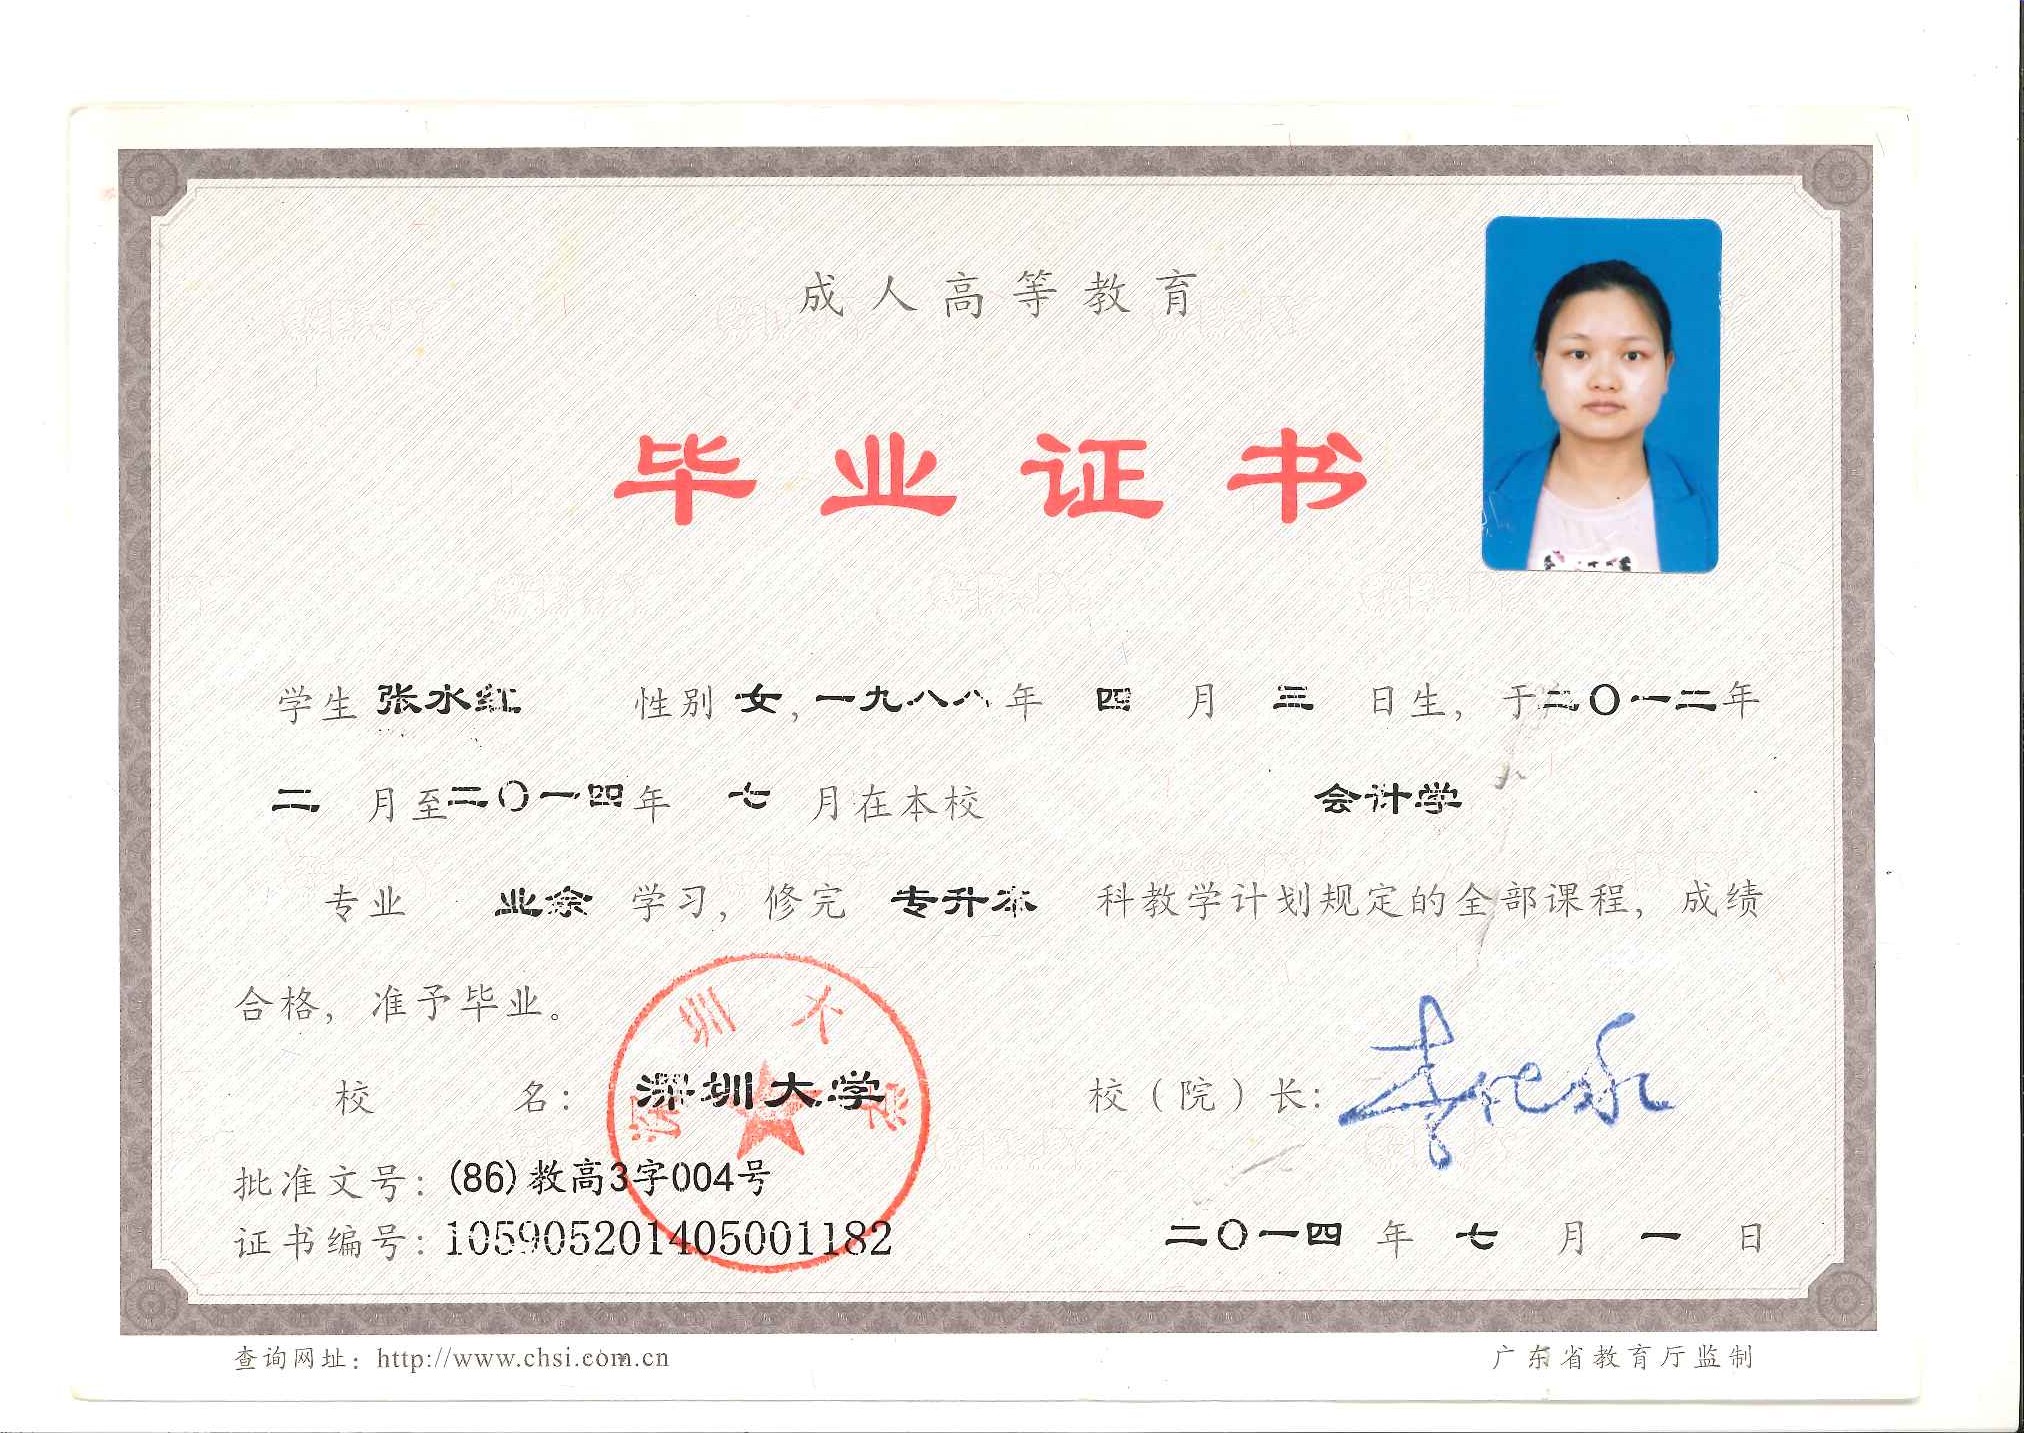 成人高等教育
毕业证书
学生 张水红 性别 女，一九八八年 四 月 三 日生，于二〇一二年
二 月至二〇一四年 七 月在本校 会计学
专业 业余 学习，修完 专升本 科教学计划规定的全部课程，成绩
合格，准予毕业。
校 名：深圳大学 校（院）长：
深圳大学
批准文号：(86)教高3字004号
证书编号：105905201405001182 二〇一四 年 七 月 一 日
查询网址：http://www.chsi.com.cn 广东省教育厅监制